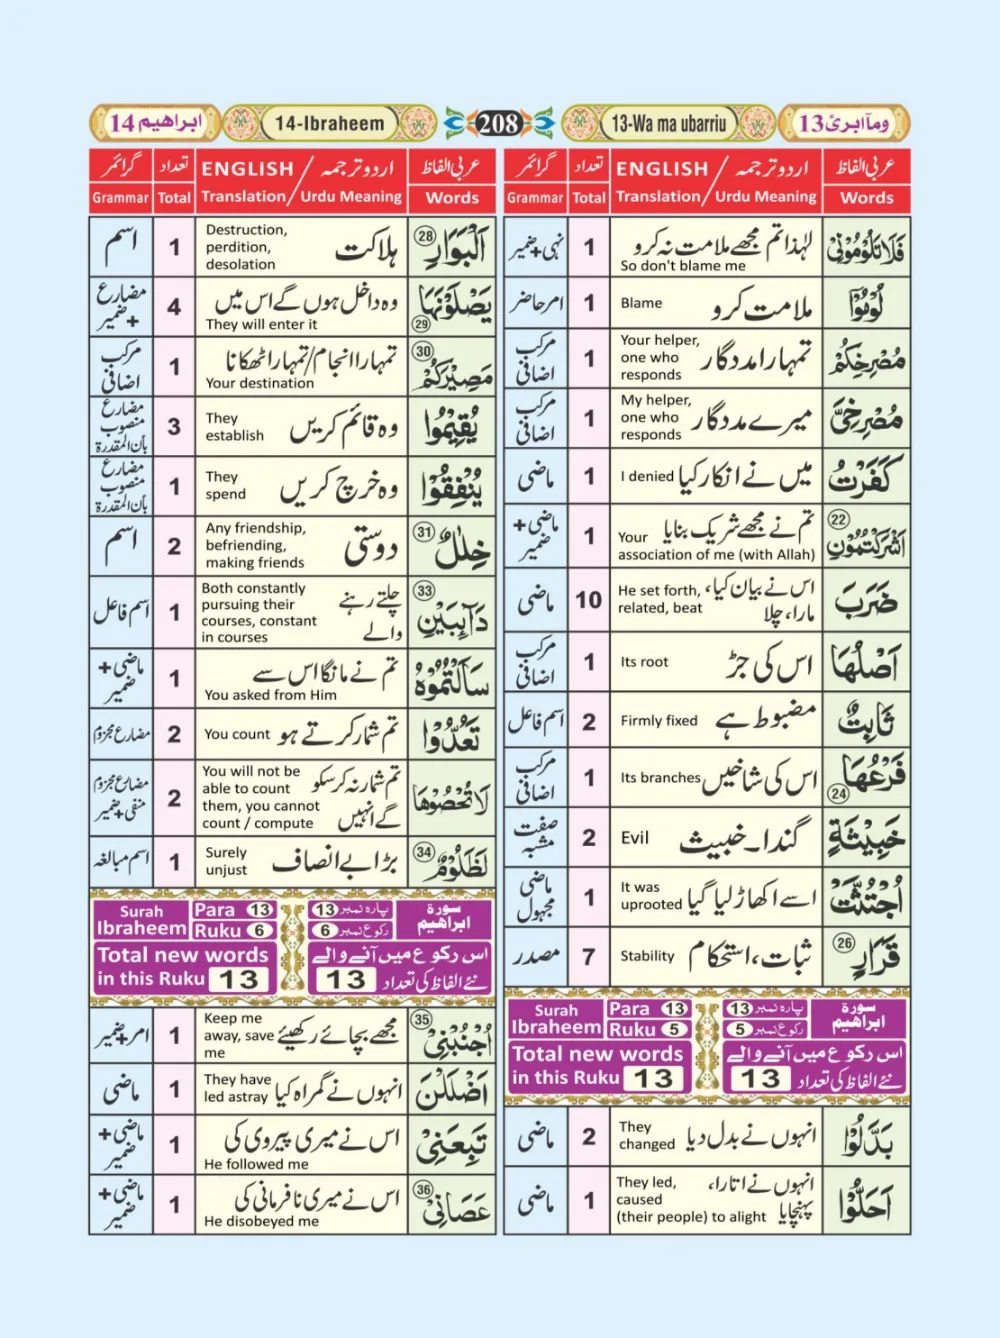 ابراهیم 14
14-Ibraheem
208
13-Wa ma ubarriu
ومآ ابرئ 13
عربی الفاظ
اردو ترجمہ / ENGLISH
تعداد
گرائمر
Words
Translation / Urdu Meaning
Total
Grammar
فَلَا تَلُوْمُوْنِیْ
لہٰذا تم مجھے ملامت نہ کرو
So don't blame me
1
نہی+ضمیر
لُوْمُوْۤا
ملامت کرو
Blame
1
امر حاضر
مُصْرِخِكُمْ
تمہارا مددگار
Your helper,
one who
responds
1
مرکب
اضافی
مُصْرِخِیَّ
میرے مددگار
My helper,
one who
responds
1
مرکب
اضافی
كَفَرْتُ
میں نے انکار کیا
I denied
1
ماضی
22
اَشْرَكْتُمُوْنِ
تم نے مجھے شریک بنایا
Your
association of me (with Allah)
1
ماضی+
ضمیر
ضَرَبَ
اس نے بیان کیا،
مارا، چلا
He set forth,
related, beat
10
ماضی
اَصْلُهَا
اس کی جڑ
Its root
1
مرکب
اضافی
ثَابِتٌ
مضبوط ہے
Firmly fixed
2
اسم فاعل
فَرْعُهَا
24
اس کی شاخیں
Its branches
1
مرکب
اضافی
خَبِیْثَةٍ
گندا۔خبیث
Evil
2
صفت
مشبہ
اجْتُثَّتْ
اسے اکھاڑ لیا گیا
It was
uprooted
1
ماضی
مجہول
26
قَرَارٍ
ثبات، استحکام
Stability
7
مصدر
Surah
Ibraheem
Para 13
Ruku 5
پارہ نمبر 13
رکوع نمبر 5
سورة
ابراهیم
Total new words
in this Ruku 13
اس رکوع میں آنے والے
نئے الفاظ کی تعداد 13
بَدَّلُوْا
انہوں نے بدل دیا
They
changed
2
ماضی
اَحَلُّوْا
انہوں نے اتارا،
پہنچایا
They led,
caused
(their people) to alight
1
ماضی
عربی الفاظ
اردو ترجمہ / ENGLISH
تعداد
گرائمر
Words
Translation / Urdu Meaning
Total
Grammar
28
الْبَوَارِ
ہلاکت
Destruction,
perdition,
desolation
1
اسم
یَصْلَوْنَهَا
29
وہ داخل ہوں گے اس میں
They will enter it
4
مضارع
+ضمیر
30
مَصِیْرَكُمْ
تمہارا انجام/تمہارا ٹھکانا
Your destination
1
مرکب
اضافی
یُقِیْمُوا
وہ قائم کریں
They
establish
3
مضارع
منصوب
بأن المقدرة
یُنْفِقُوْا
وہ خرچ کریں
They
spend
1
مضارع
منصوب
بأن المقدرة
31
خِلٰلٌ
دوستی
Any friendship,
befriending,
making friends
2
اسم
33
دَآىِٕبَیْنِ
چلتے رہنے
والے
Both constantly
pursuing their
courses, constant
in courses
1
اسم فاعل
سَاَلْتُمُوْهُ
تم نے مانگا اس سے
You asked from Him
1
ماضی+
ضمیر
تَعُدُّوْا
تم شمار کرتے ہو
You count
2
مضارع مجزوم
لَا تُحْصُوْهَا
تم شمار نہ کر سکو
گے انہیں
You will not be
able to count
them, you cannot
count / compute
2
مضارع مجزوم
منفی+ضمیر
34
لَظَلُوْمٌ
بڑا بے انصاف
Surely
unjust
1
اسم مبالغہ
Surah
Ibraheem
Para 13
Ruku 6
پارہ نمبر 13
رکوع نمبر 6
سورة
ابراهیم
Total new words
in this Ruku 13
اس رکوع میں آنے والے
نئے الفاظ کی تعداد 13
35
اجْنُبْنِیْ
مجھے بچائے رکھیئے
Keep me
away, save
me
1
امر+ضمیر
اَضْلَلْنَ
انہوں نے گمراہ کیا
They have
led astray
1
ماضی
تَبِعَنِیْ
اس نے میری پیروی کی
He followed me
1
ماضی+
ضمیر
36
عَصَانِیْ
اس نے میری نافرمانی کی
He disobeyed me
1
ماضی+
ضمیر